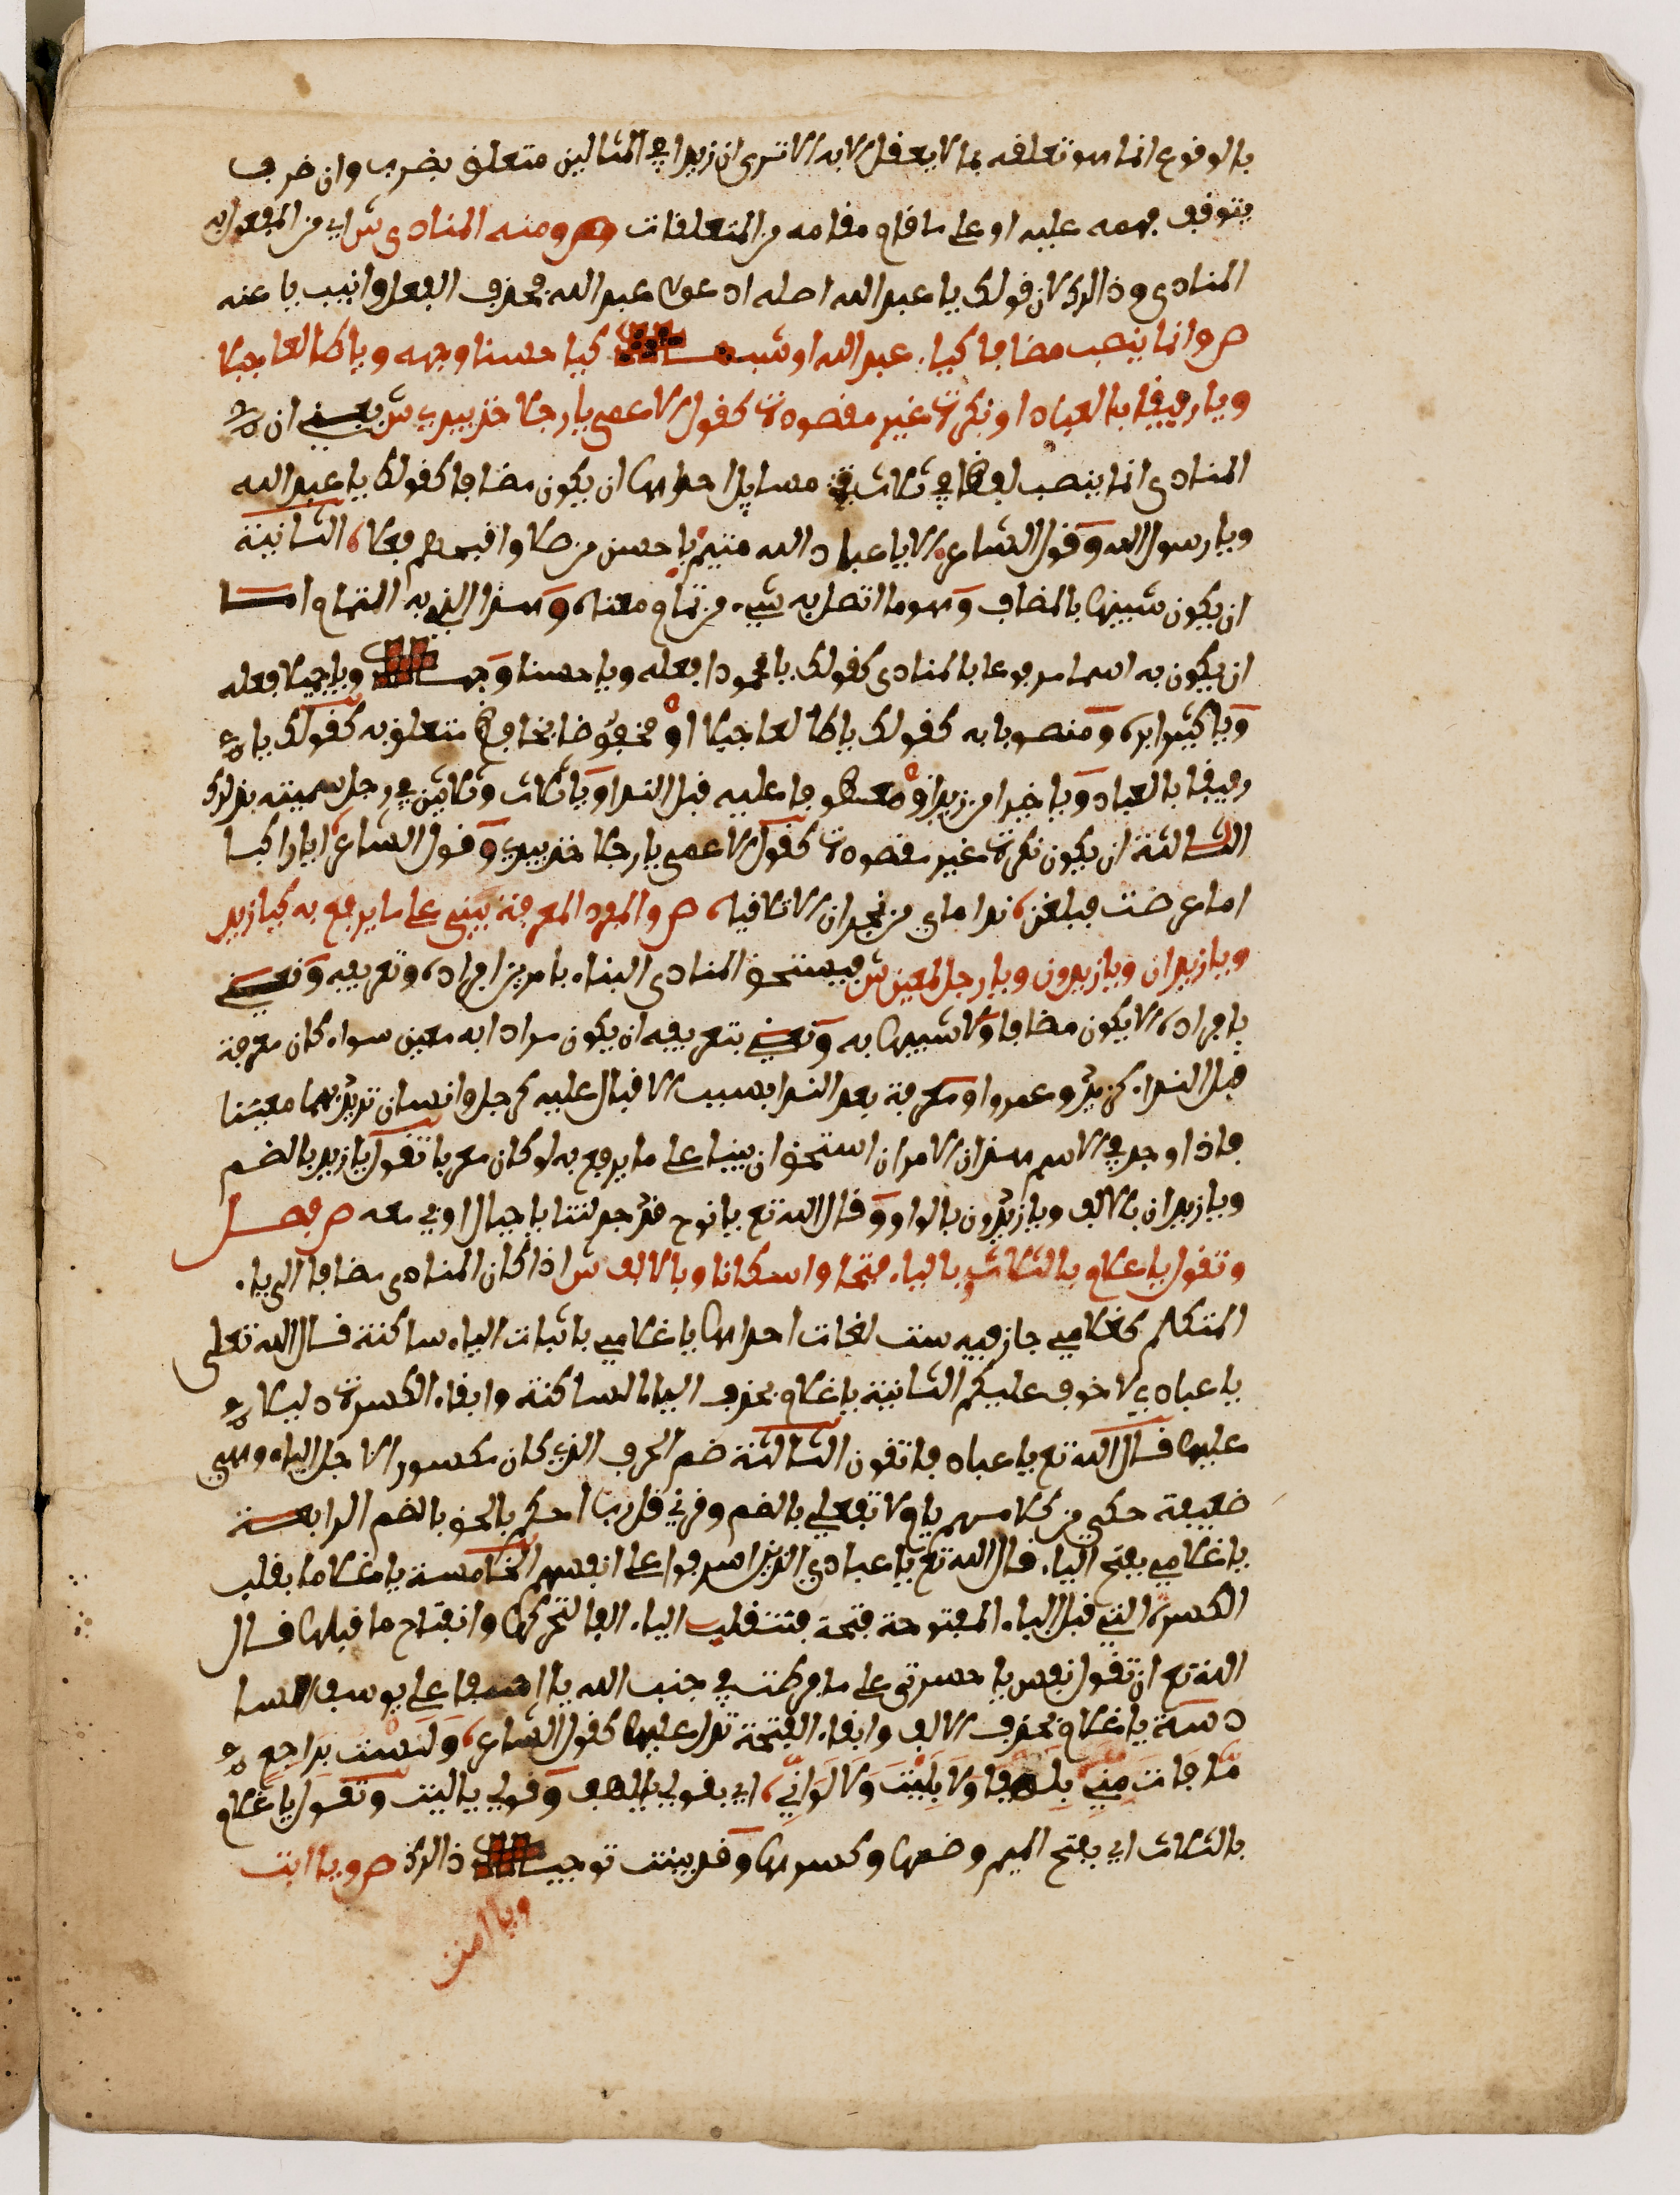 بالوقوع انما هو تعلقه بما لا يعقل الا به الا ترى ان زيدا في المثالين متعلق بضرب وان ضرب
يتوقف فهمه عليه او على ما قام مقامه من المتعلقات ص ومنه المنادى ش اي من المفعول به
المنادى وذالك لان قولك يا عبد الله اصله ادعوا عبد الله فحذف الفعل وانيب يا عنه
ص وانما ينصب مضافا كيا عبد الله او شبهه كيا حسنا وجهه ويا طالعا جبلا
ويا رفيقا بالعباد او نكرة غير مقصودة كقول الاعمى يا رجلا خذ بيدي ش يعني ان
المنادى انما ينصب لفظا في ثلاث مسايل احداها ان يكون مضافا كقولك يا عبد الله
ويا رسول الله وقول الشاعر الا يا عباد الله متيم باحسن من صلا واقبحهم فعلا الثانية
ان يكون شبيها بالمضاف وهو ما اتصل به شيء من تمام معناه وهذا الذي به التمام اما
ان يكون به اسما مرفوعا بالمنادى كقولك يا محمودا فعله ويا حسنا وجهه ويا جميلا فعله
ويا كثيرا بره ومنصوبا به كقولك يا طالعا جبلا او مخفوضا بخافض متعلق به كقولك يا
رفيقا بالعباد ويا خيرا من زيد او معطوفا عليه قبل الندا ويا ثلاث وثلاثين في رجل سميته بذلك
الثالثة ان يكون نكرة غير مقصودة كقول الاعمى يا رجلا خذ بيدي وقول الشاعر ايا راكبا
اما عرضت فبلغن نداماي من نجران الا تلاقيا ص والمفرد المعرفة يبنى على ما يرفع به كيا زيد
ويا زيدان ويا زيدون ويا رجل لمعين ش يستحق المنادى البناء بامرين افراده وتعريفه ونعني
بافراده الا يكون مضافا ولا شبيها به ونعني بتعريفه ان يكون مرادا به معين سواء كان معرفة
قبل النداء كزيد وعمرو او معرفة بعد الندا بسبب الاقبال عليه كرجل وانسان تريد بهما معينا
فاذا وجد في الاسم هذان الامران استحق ان يبنى على ما يرفع به لو كان معربا تقول يا زيد بالضم
ويا زيدان بالالف ويا زيدون بالواو وقال الله تع يا نوح قد جدلتنا يا جبال اوبي معه ص فصل
وتقول يا غلام بالثلاث وبالياء فتحا واسكانا وبالالف ش اذا كان المنادى مضافا الى ياء
المتكلم كغلامي جاز فيه ست لغات احداها يا غلامي باثبات الياء ساكنة قال الله تعلى
يا عبادي لا خوف عليكم الثانية يا غلام بحذف الياء الساكنة وابقاء الكسرة دليلا
عليها قال الله تع يا عباد فاتقون الثالثة ضم الحرف الذي كان مكسورا لاجل الياء وهي
ضعيفة حكي من كلامهم يا ام لا تفعلي بالضم وقرئ قل رب احكم بالحق بالضم الرابعة
يا غلامي بفتح الياء قال الله تع يا عبادي الذين اسرفوا على انفسهم الخامسة يا غلاما بقلب
الكسرة التي قبل الياء المفتوحة فتحة فتنقلب الياء الفا لتحركها وانفتاح ما قبلها قال
الله تع ان تقول نفس يا حسرتى على ما فرطت في جنب الله يا اسفا على يوسف السا
دسة يا غلام بحذف الالف وابقاء الفتحة تدل عليها كقول الشاعر وَلَسْت بِرَاجعٍ
مَا فَاتَ مِنِّي بِلَهْفَ وَلَا بِلَيْتَ وَلَا لَوَانِّي اي بقولي يا لهف وقولي يا ليت وتقول يا غلام
بالثلاث اي بفتح الميم وضمها وكسرها وقد بينت توجيه ذالك ص ويا ابت
ويا امت